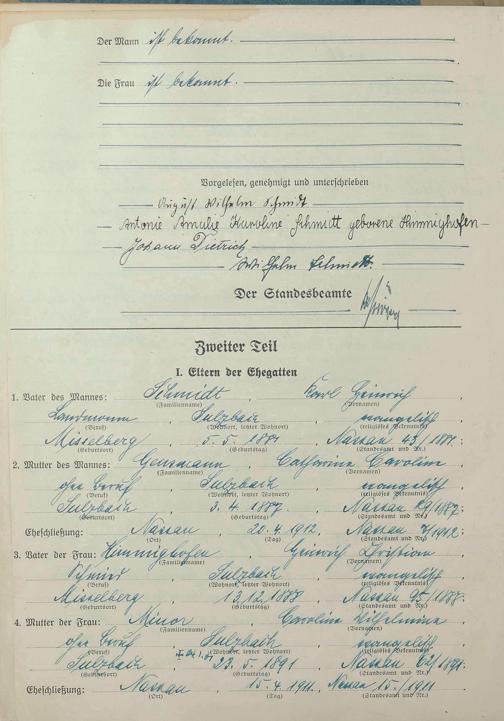 Der Mann ist bekannt.
Die Frau ist bekannt.
Vorgelesen, genehmigt und unterschrieben
August Wilhelm Schmidt
Antonie Amalie Karoline Schmidt geborene Himmighofen
Johann Dietrich
Wilhelm Schmidt.
Der Standesbeamte
Zweiter Teil
I. Eltern der Ehegatten
1. Vater des Mannes: Schmidt, Karl Heinrich
(Familienname) (Vornamen)
Landmann, Sulzbach, evangelisch
(Beruf) (Wohnort, letzter Wohnort) (religiöses Bekenntnis)
Misselberg 5.5.1881 Nassau 43/1881.
(Geburtsort) (Geburtstag) (Standesamt und Nr.)
2. Mutter des Mannes: Catharine Caroline
(Familienname) (Vornamen)
ohne Beruf, Sulzbach, evangelisch
(Beruf) (Wohnort, letzter Wohnort) (religiöses Bekenntnis)
Sulzbach 3.4.1887. Nassau 29/1887.
(Geburtsort) (Geburtstag) (Standesamt und Nr.)
Eheschließung: Nassau, 20.4.1912. Nassau /1912.
(Ort) (Tag) (Standesamt und Nr.)
3. Vater der Frau: Himmighofen, Heinrich Christian
(Familienname) (Vornamen)
Schmied, Sulzbach, evangelisch
(Beruf) (Wohnort, letzter Wohnort) (religiöses Bekenntnis)
Misselberg, 13.12.1888 Nassau 95/1888.
(Geburtsort) (Geburtstag) (Standesamt und Nr.)
4. Mutter der Frau: Minor, Caroline Wilhelmine
(Familienname) (Vornamen)
ohne Beruf, Sulzbach, evangelisch
(Beruf) (Wohnort, letzter Wohnort) (religiöses Bekenntnis)
Sulzbach 23.5.1891 Nassau 62/1891.
(Geburtsort) (Geburtstag) (Standesamt und Nr.)
Eheschließung: Nassau, 15.4.1911. Nassau 15/1911
(Ort) (Tag) (Standesamt und Nr.)